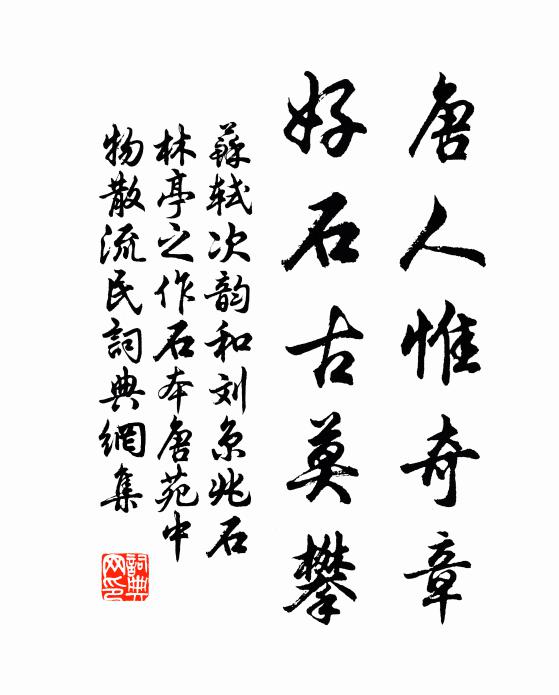 唐人惟奇章
好石古莫攀
蘇軾次韵和刘京兆石
林亭之作石本唐苑中
物散流民詞典網集
詞典
网印